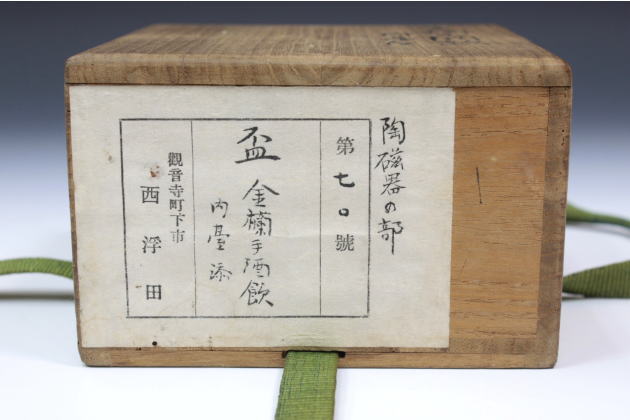 陶磁器の部
第七〇號
盃 金蘭手酒飲
内臺添
觀音寺町下市
西浮田